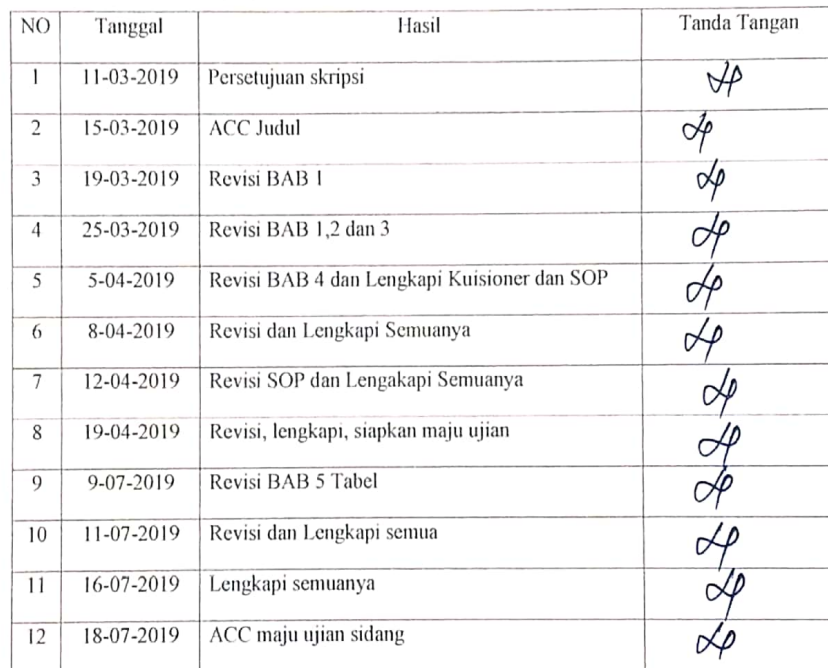 NO Tanggal Hasil Tanda Tangan
1 11-03-2019 Persetujuan skripsi
2 15-03-2019 ACC Judul
3 19-03-2019 Revisi BAB 1
4 25-03-2019 Revisi BAB 1,2 dan 3
5 5-04-2019 Revisi BAB 4 dan Lengkapi Kuisioner dan SOP
6 8-04-2019 Revisi dan Lengkapi Semuanya
7 12-04-2019 Revisi SOP dan Lengakapi Semuanya
8 19-04-2019 Revisi, lengkapi, siapkan maju ujian
9 9-07-2019 Revisi BAB 5 Tabel
10 11-07-2019 Revisi dan Lengkapi semua
11 16-07-2019 Lengkapi semuanya
12 18-07-2019 ACC maju ujian sidang